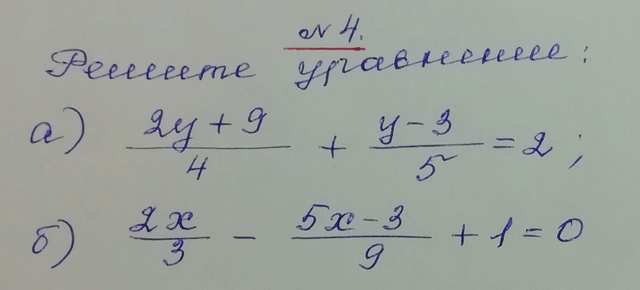 № 4.
Решите уравнение:
а) (2y + 9)/4 + (y - 3)/5 = 2;
б) 2x/3 - (5x - 3)/9 + 1 = 0